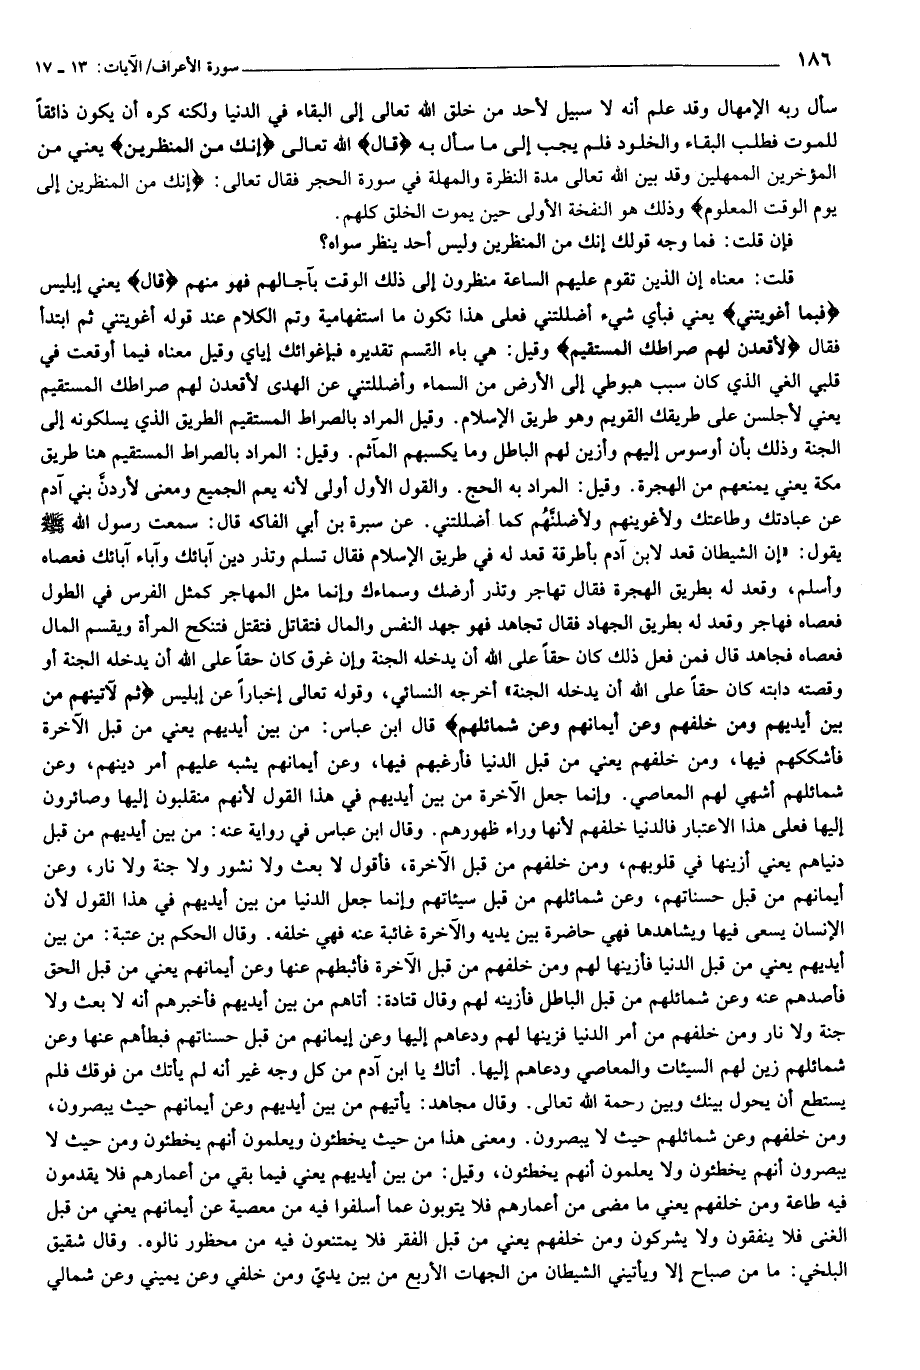 ١٨٦ سورة الأعراف/ الآيات: ١٣ ـ ١٧
سأل ربه الإمهال وقد علم أنه لا سبيل لأحد من خلق الله تعالى إلى البقاء في الدنيا ولكنه كره أن يكون ذائقاً
للموت فطلب البقاء والخلود فلم يجب إلى ما سأل به ﴿قال﴾ الله تعالى ﴿إنك من المنظرين﴾ يعني من
المؤخرين الممهلين وقد بين الله تعالى مدة النظرة والمهلة في سورة الحجر فقال تعالى: ﴿إنك من المنظرين إلى
يوم الوقت المعلوم﴾ وذلك هو النفخة الأولى حين يموت الخلق كلهم.
فإن قلت: فما وجه قولك إنك من المنظرين وليس أحد ينظر سواه؟
قلت: معناه إن الذين تقوم عليهم الساعة منظرون إلى ذلك الوقت بآجالهم فهو منهم ﴿قال﴾ يعني إبليس
﴿فبما أغويتني﴾ يعني فبأي شيء أضللتني فعلى هذا تكون ما استفهامية وتم الكلام عند قوله أغويتني ثم ابتدأ
فقال ﴿لأقعدن لهم صراطك المستقيم﴾ وقيل: هي باء القسم تقديره فبإغوائك إياي وقيل معناه فيما أوقعت في
قلبي الغي الذي كان سبب هبوطي إلى الأرض من السماء وأضللتني عن الهدى لأقعدن لهم صراطك المستقيم
يعني لأجلسن على طريقك القويم وهو طريق الإسلام. وقيل المراد بالصراط المستقيم الطريق الذي يسلكونه إلى
الجنة وذلك بأن أوسوس إليهم وأزين لهم الباطل وما يكسبهم المآثم. وقيل: المراد بالصراط المستقيم هنا طريق
مكة يعني يمنعهم من الهجرة. وقيل: المراد به الحج. والقول الأول أولى لأنه يعم الجميع ومعنى لأردنَّ بني آدم
عن عبادتك وطاعتك ولأغوينهم ولأضلنَّهُم كما أضللتني. عن سبرة بن أبي الفاكه قال: سمعت رسول الله ﷺ
يقول: «إن الشيطان قعد لابن آدم بأطرقة قعد له في طريق الإسلام فقال تسلم وتذر دين آبائك وآباء آبائك فعصاه
وأسلم، وقعد له بطريق الهجرة فقال تهاجر وتذر أرضك وسماءك وإنما مثل المهاجر كمثل الفرس في الطول
فعصاه فهاجر وقعد له بطريق الجهاد فقال تجاهد فهو جهد النفس والمال فتقاتل فتقتل فتنكح المرأة ويقسم المال
فعصاه فجاهد قال فمن فعل ذلك كان حقاً على الله أن يدخله الجنة وإن غرق كان حقاً على الله أن يدخله الجنة أو
وقصته دابته كان حقاً على الله أن يدخله الجنة» أخرجه النسائي، وقوله تعالى إخباراً عن إبليس ﴿ثم لآتينهم من
بين أيديهم ومن خلفهم وعن أيمانهم وعن شمائلهم﴾ قال ابن عباس: من بين أيديهم يعني من قبل الآخرة
فأشككهم فيها، ومن خلفهم يعني من قبل الدنيا فأرغبهم فيها، وعن أيمانهم يشبه عليهم أمر دينهم، وعن
شمائلهم أشهي لهم المعاصي. وإنما جعل الآخرة من بين أيديهم في هذا القول لأنهم منقلبون إليها وصائرون
إليها فعلى هذا الاعتبار فالدنيا خلفهم لأنها وراء ظهورهم. وقال ابن عباس في رواية عنه: من بين أيديهم من قبل
دنياهم يعني أزينها في قلوبهم، ومن خلفهم من قبل الآخرة، فأقول لا بعث ولا نشور ولا جنة ولا نار، وعن
أيمانهم من قبل حسناتهم، وعن شمائلهم من قبل سيئاتهم وإنما جعل الدنيا من بين أيديهم في هذا القول لأن
الإنسان يسعى فيها ويشاهدها فهي حاضرة بين يديه والآخرة غائبة عنه فهي خلفه. وقال الحكم بن عتبة: من بين
أيديهم يعني من قبل الدنيا فأزينها لهم ومن خلفهم من قبل الآخرة فأثبطهم عنها وعن أيمانهم يعني من قبل الحق
فأصدهم عنه وعن شمائلهم من قبل الباطل فأزينه لهم وقال قتادة: أتاهم من بين أيديهم فأخبرهم أنه لا بعث ولا
جنة ولا نار ومن خلفهم من أمر الدنيا فزينها لهم ودعاهم إليها وعن إيمانهم من قبل حسناتهم فبطأهم عنها وعن
شمائلهم زين لهم السيئات والمعاصي ودعاهم إليها. أتاك يا ابن آدم من كل وجه غير أنه لم يأتك من فوقك فلم
يستطع أن يحول بينك وبين رحمة الله تعالى. وقال مجاهد: يأتيهم من بين أيديهم وعن أيمانهم حيث يبصرون،
ومن خلفهم وعن شمائلهم حيث لا يبصرون. ومعنى هذا من حيث يخطئون ويعلمون أنهم يخطئون ومن حيث لا
يبصرون أنهم يخطئون ولا يعلمون أنهم يخطئون، وقيل: من بين أيديهم يعني فيما بقي من أعمارهم فلا يقدمون
فيه طاعة ومن خلفهم يعني ما مضى من أعمارهم فلا يتوبون عما أسلفوا فيه من معصية عن أيمانهم يعني من قبل
الغنى فلا ينفقون ولا يشركون ومن خلفهم يعني من قبل الفقر فلا يمتنعون فيه من محظور نالوه. وقال شقيق
البلخي: ما من صباح إلا ويأتيني الشيطان من الجهات الأربع من بين يديّ ومن خلفي وعن يميني وعن شمالي